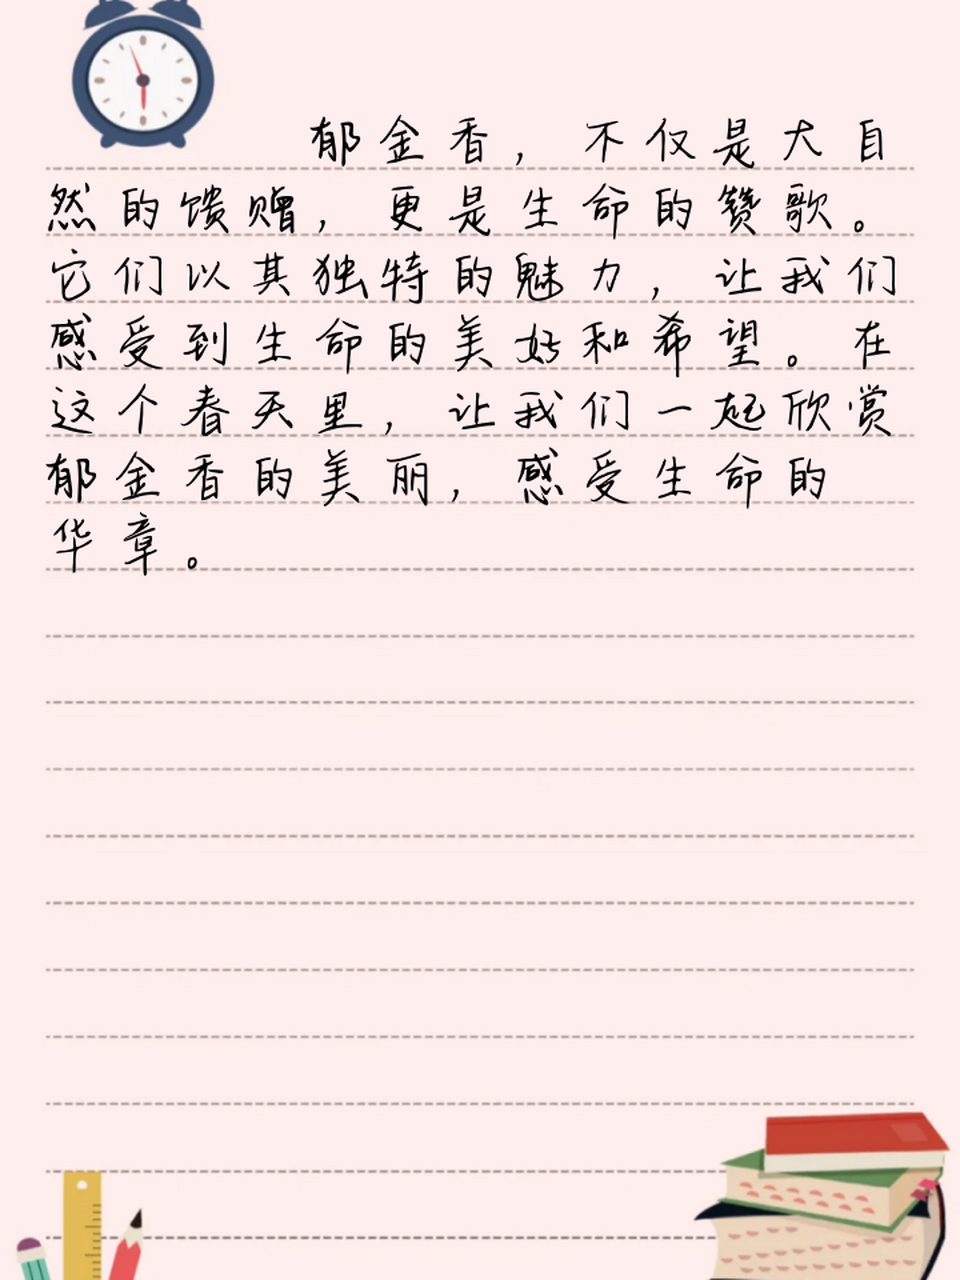 郁金香，不仅是大自
然的馈赠，更是生命的赞歌。
它们以其独特的魅力，让我们
感受到生命的美好和希望。在
这个春天里，让我们一起欣赏
郁金香的美丽，感受生命的
华章。